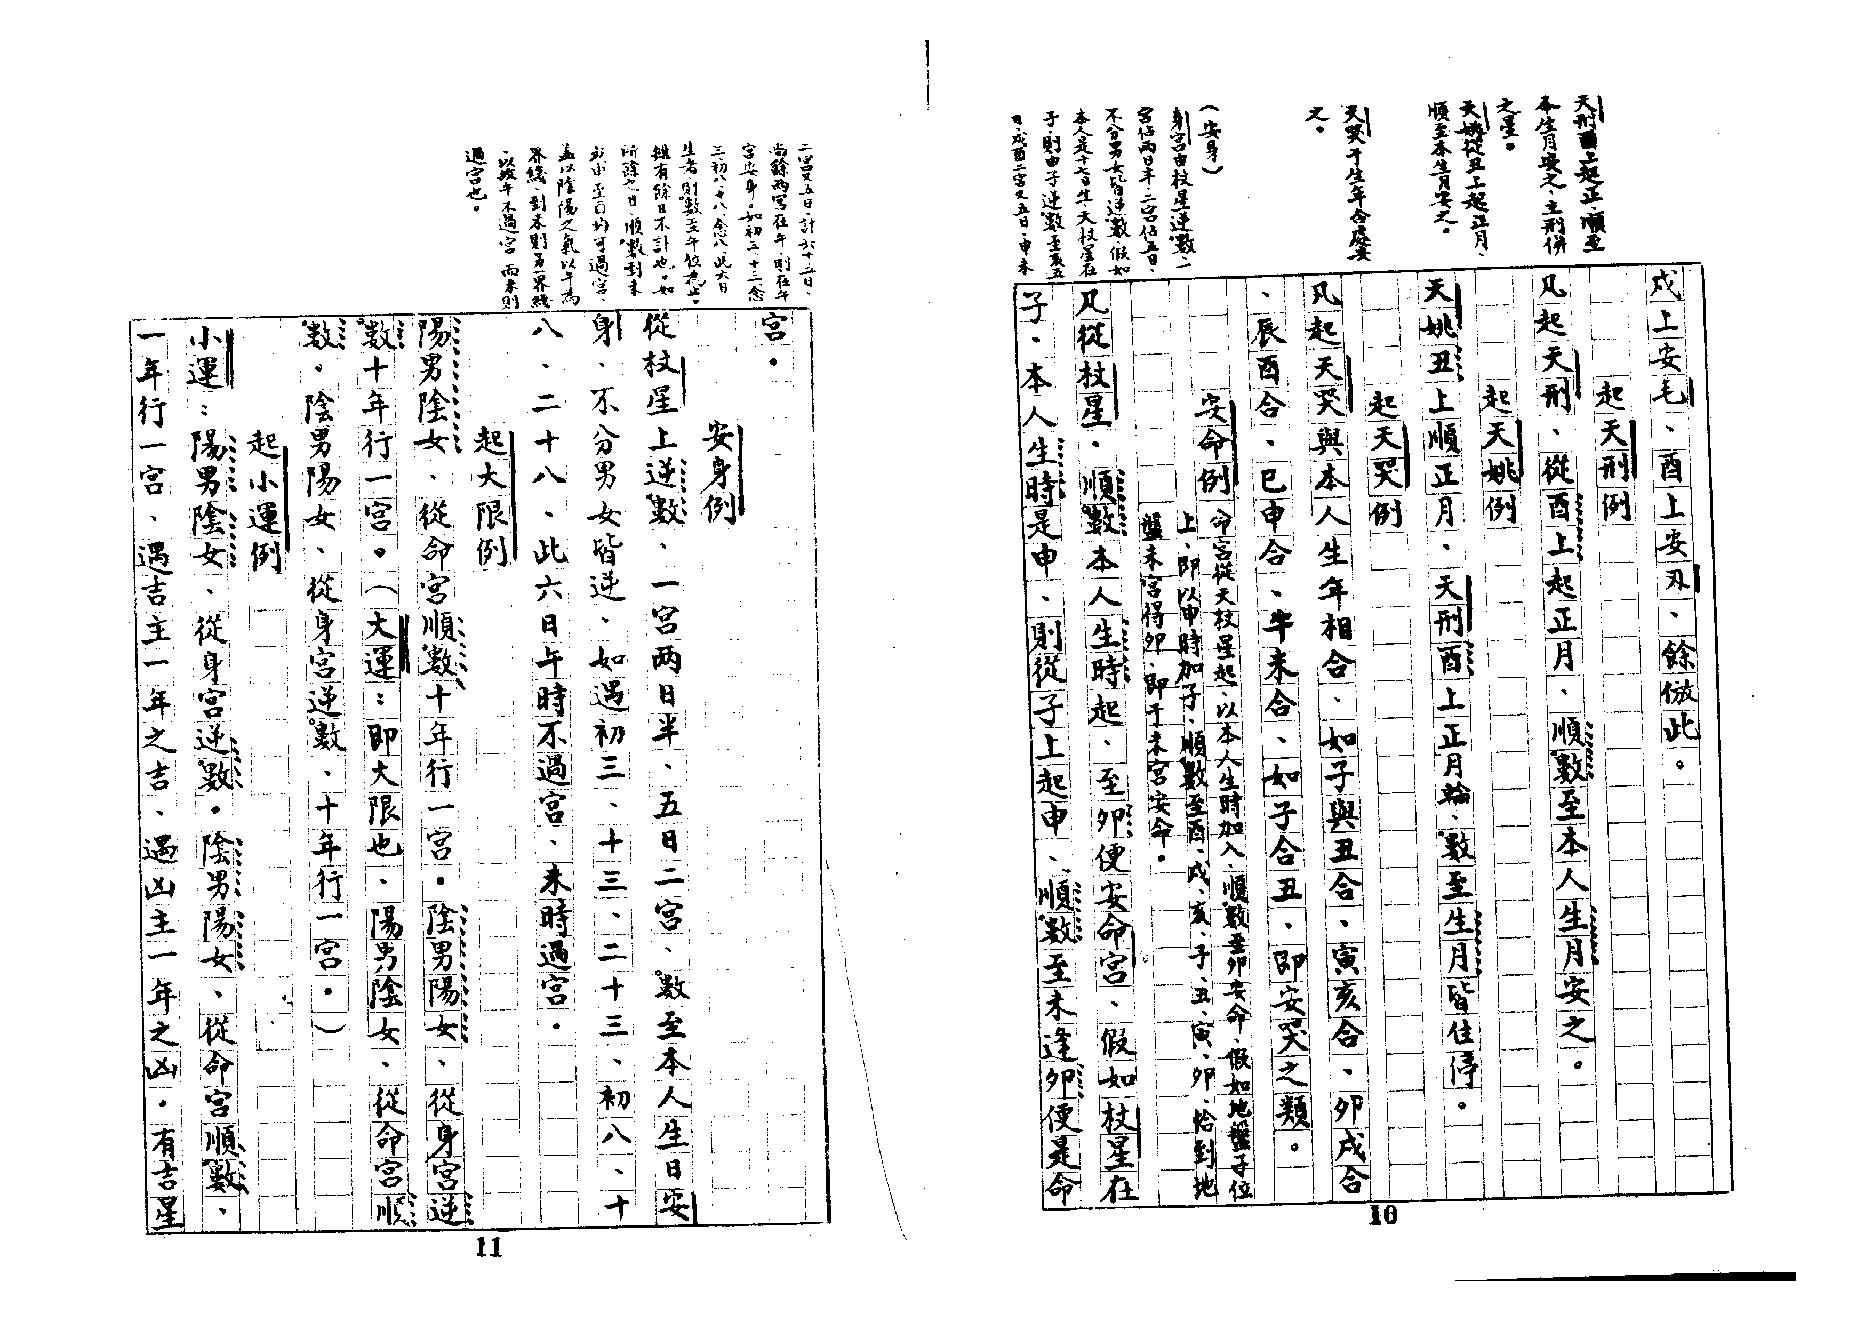 天刑酉上起正、順至
本生月安之、主刑併
之星。
天姚從丑上起正月、
順至本生月安之。
天哭于生年合處安
之。
(安身)
身宮由杖星逆數、一
宮佔兩日半、二宮佔五日、
不分男女皆逆數、假如
本人是十七日生、天杖星在
子、則由子逆數至亥五
日、戌酉二宮又五日、申未
戌上安毛、酉上安刃、餘倣此。
起天刑例
凡起天刑、從酉上起正月、順數至本人生月安之。
起天姚例
天姚丑上順正月、天刑酉上正月輪、數至生月皆住停。
起天哭例
凡起天哭與本人生年相合、如子與丑合、寅亥合、卯戌合
、辰酉合、巳申合、午未合、如子合丑、即安哭之類。
安命例
命宮從天杖星起、以本人生時加入、順數至卯安命、假如地盤子位
上、即以申時加子、順數至酉、戌、亥、子、丑、寅、卯、恰到地
盤未宮得卯、即于未宮安命。
凡從杖星、順數本人生時起、至卯便安命宮、假如杖星在
子、本人生時是申、則從子上起申、順數至未逢卯便是命
10
二宮又五日、計六十五日、
尚餘兩宮在午、則在午
宮安身。如初三、十三、念
三、初八、十八、念八、此六日
生者、則數至午位為止。
縱有餘日不計也。如
所餘之日、順數到未
或申至酉均可過宮、
蓋以陰陽之氣以午為
界綫、到未則另一界綫
、以致午不過宮、而未則
過宮也。
宮。
安身例
從杖星上逆數、一宮兩日半、五日二宮、數至本人生日安
身、不分男女皆逆、如遇初三、十三、二十三、初八、十
八、二十八、此六日午時不過宮、未時過宮。
起大限例
陽男陰女、從命宮順數十年行一宮。陰男陽女、從身宮逆
數十年行一宮。(大運:即大限也、陽男陰女、從命宮順
數。陰男陽女、從身宮逆數、十年行一宮。)
起小運例
小運:陽男陰女、從身宮逆數。陰男陽女、從命宮順數、
一年行一宮、遇吉主一年之吉、遇凶主一年之凶。有吉星
11